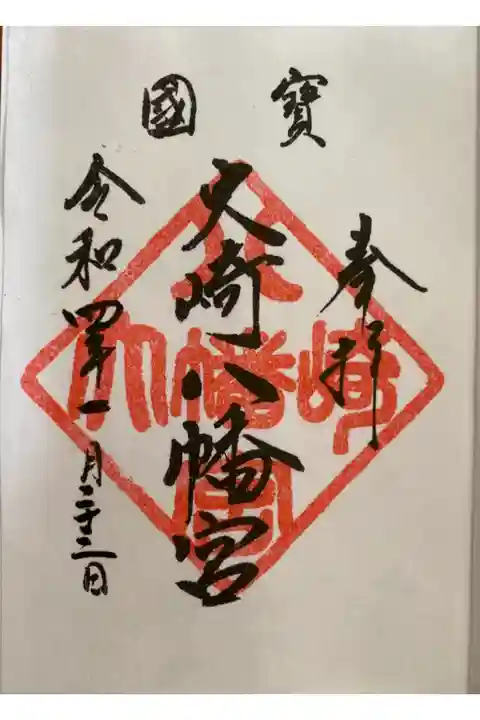 國寶
奉拝
大崎八幡宮
令和四年一月二十二日
大崎八幡宮